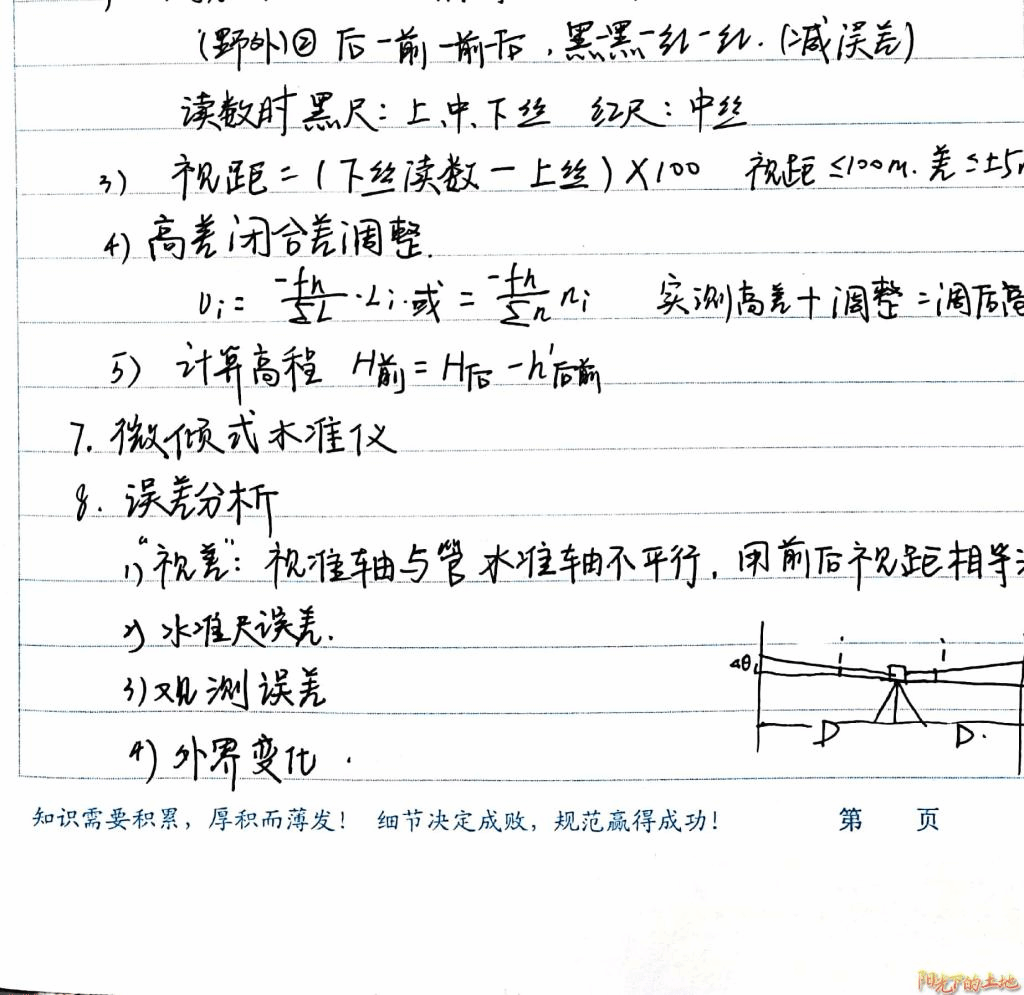 (野外)② 后一前一前一后，黑一黑一红一红. (减误差)
读数时黑尺：上、中、下丝 红尺：中丝
3) 视距=(下丝读数一上丝)×100 视距≤100m. 差≤±5
4) 高差闭合差调整.
υi = -fh/ΣL · Li. 或 = -fh/Σn ni 实测高差+调整=调后高
5) 计算高程 H前=H后-h'后前
7. 微倾式水准仪
8. 误差分析
1) “视差”：视准轴与管水准轴不平行，用前后视距相等
2) 水准尺误差.
3) 观测误差
i i
D D.
4) 外界变化.
知识需要积累，厚积而薄发！ 细节决定成败，规范赢得成功！ 第 页
阳光下的土地